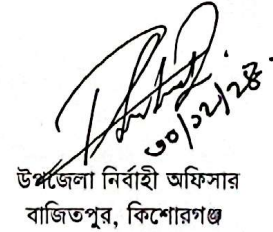 ৩০/১২/২৪
উপজেলা নির্বাহী অফিসার
বাজিতপুর, কিশোরগঞ্জ